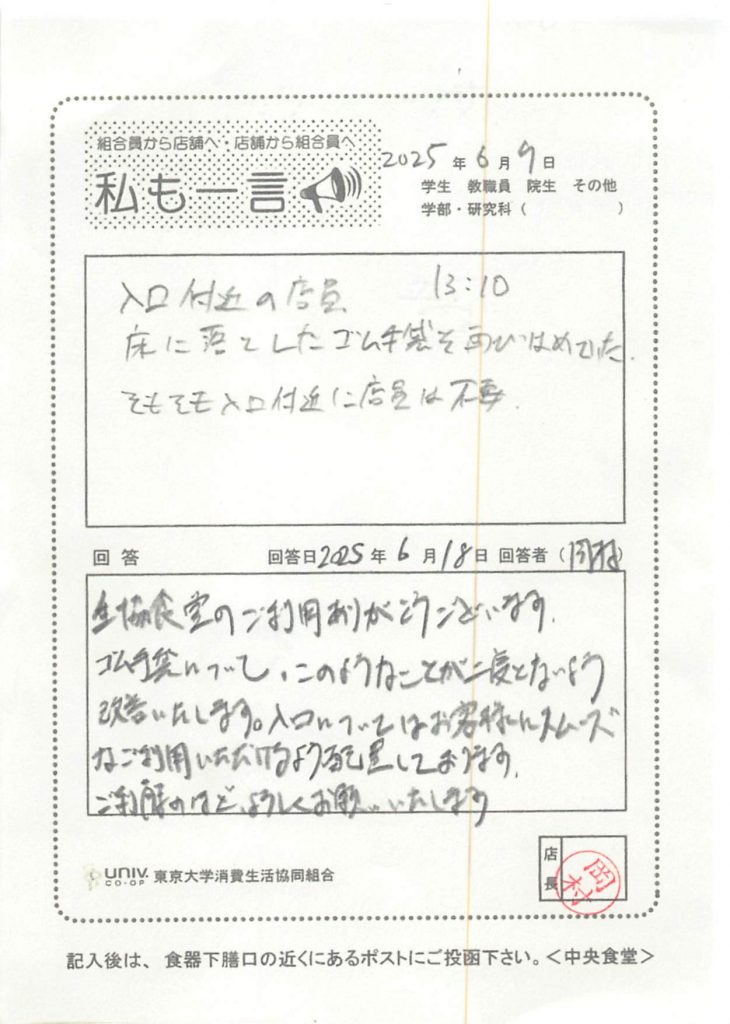 組合員から店舗へ・店舗から組合員へ
私も一言
2025年6月9日
学生 教職員 院生 その他
学部・研究科( )
入口付近の店員 13:10
床に落としたゴム手袋を再びはめていた.
そもそも入口付近に店員は不要.
回答 回答日2025年6月18日 回答者(岡村)
生協食堂のご利用ありがとうございます.
ゴム手袋について、このようなことが二度とないよう
改善いたします。入口についてはお客様にスムーズ
なご利用いただけるよう配置しております.
ご理解のほど、よろしくお願いいたします
店長
岡村
UNIV.
CO-OP
東京大学消費生活協同組合
記入後は、食器下膳口の近くにあるポストにご投函下さい。<中央食堂>